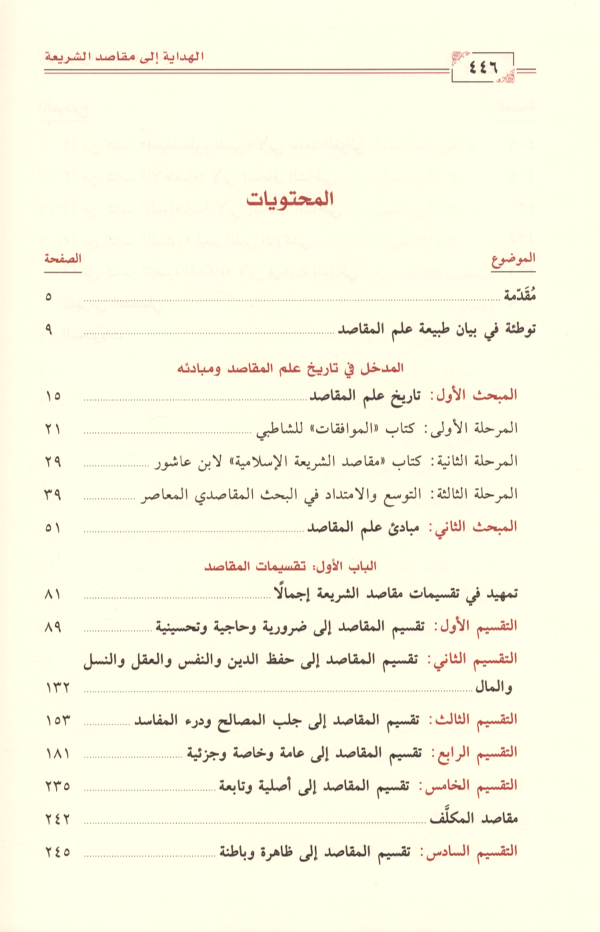 الهداية إلى مقاصد الشريعة
٤٤٦
المحتويات
الموضوع الصفحة
مُقَدّمة ٥
توطئة في بيان طبيعة علم المقاصد ٩
المدخل في تاريخ علم المقاصد ومبادئه
المبحث الأول: تاريخ علم المقاصد ١٥
المرحلة الأولى: كتاب «الموافقات» للشاطبي ٢١
المرحلة الثانية: كتاب «مقاصد الشريعة الإسلامية» لابن عاشور ٢٩
المرحلة الثالثة: التوسع والامتداد في البحث المقاصدي المعاصر ٣٩
المبحث الثاني: مبادئ علم المقاصد ٥١
الباب الأول: تقسيمات المقاصد
تمهيد في تقسيمات مقاصد الشريعة إجمالًا ٨١
التقسيم الأول: تقسيم المقاصد إلى ضرورية وحاجية وتحسينية ٨٩
التقسيم الثاني: تقسيم المقاصد إلى حفظ الدين والنفس والعقل والنسل
والمال ١٣٢
التقسيم الثالث: تقسيم المقاصد إلى جلب المصالح ودرء المفاسد ١٥٣
التقسيم الرابع: تقسيم المقاصد إلى عامة وخاصة وجزئية ١٨١
التقسيم الخامس: تقسيم المقاصد إلى أصلية وتابعة ٢٣٥
مقاصد المكلَّف ٢٤٢
التقسيم السادس: تقسيم المقاصد إلى ظاهرة وباطنة ٢٤٥